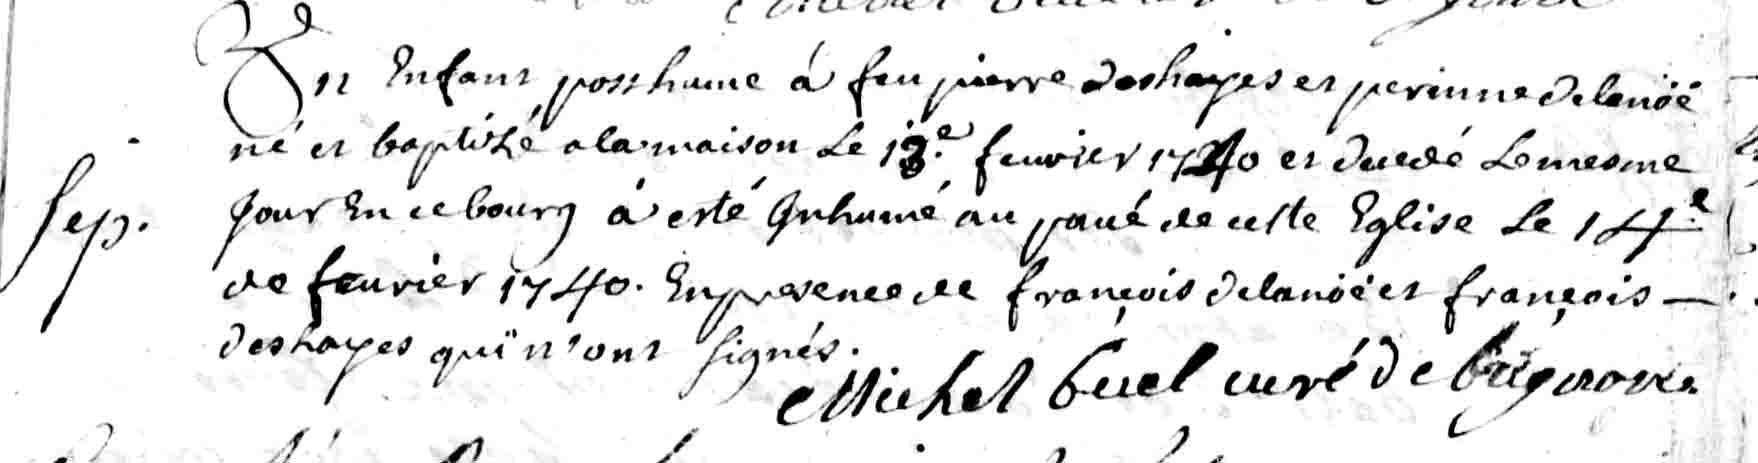 Un Enfant posthume à feu pierre deshayes et perinne delanöë
né et baptizé a la maison Le 13.e feuvrier 1740 et decedé Le mesme
Sep. Jour En ce bourg à esté Inhumé au pavé de ceste Eglise Le 14.e
de feuvrier 1740. En presence de françois delanöë et françois —
deshayes qui n'ont signés.
Michel curé de